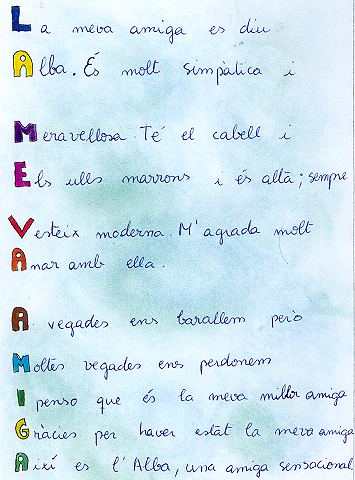 La meva amiga es diu
Alba. És molt simpàtica i
Meravellosa. Té el cabell i
Els ulls marrons i és alta; sempre
Vesteix moderna. M'agrada molt
Anar amb ella.
A vegades ens barallem però
Moltes vegades ens perdonem
I penso que és la meva millor amiga
Gràcies per haver estat la meva amiga
Així es l'Alba, una amiga sensacional.